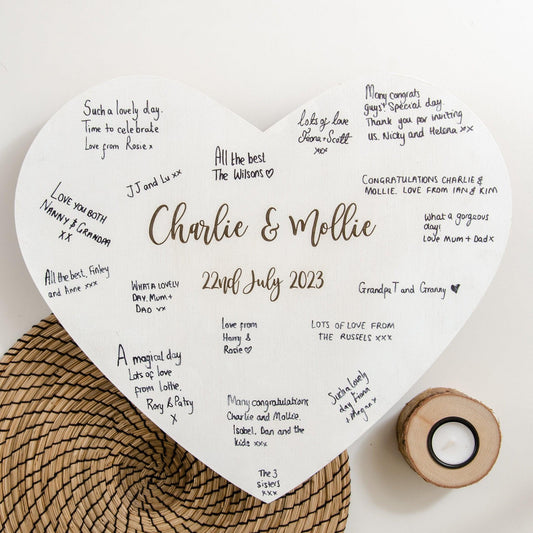 Such a lovely day.
Time to celebrate
Love from Rosie x
Lots of love
Fiona + Scott
xox
Many congrats
guys! Special day.
Thank you for inviting
us. Nicky and Helena xx
All the best
The Wilsons ♡
JJ and Lu xx
CONGRATULATIONS CHARLIE &
MOLLIE. LOVE FROM IAN & KIM
LOVE YOU BOTH
NANNY & GRANDPA
XX
Charlie & Mollie
What a gorgeous
day!
Love Mum + Dad x
22nd July 2023
All the best, Finley
and Anne xxx
WHAT A LOVELY
DAY. MUM +
DAD xx
Grandpa T and Granny ♥
Love from
Harry &
Rosie ♡
LOTS OF LOVE FROM
THE RUSSELS XXX
A magical day
Lots of love
from Lottie,
Rory & Patsy
X
Many congratulations
Charlie and Mollie.
Isobel, Dan and the
kids xxx
Such a lovely
day Fiona
+ Megan x
The 3
Sisters
xxx